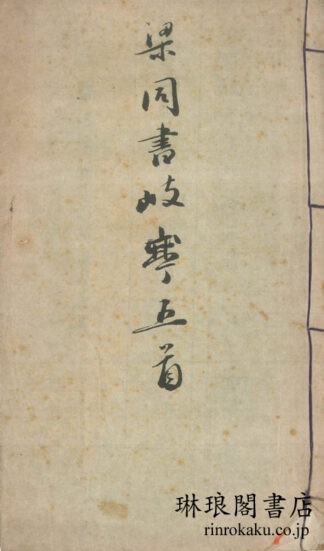 梁同書岐亭五首
琳琅閣書店
rinrokaku.co.jp